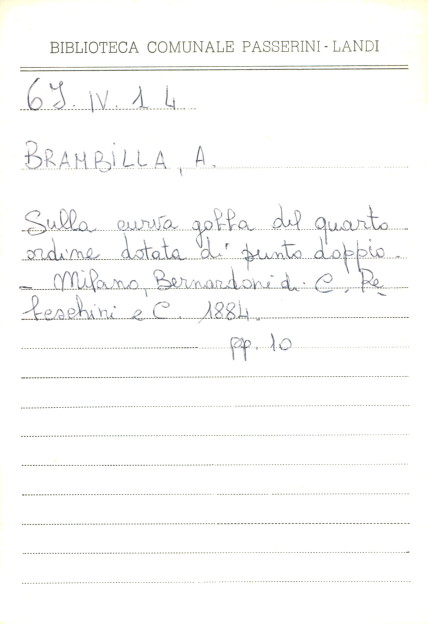 BIBLIOTECA COMUNALE PASSERINI - LANDI
6J. IV. 14
BRAMBILLA, A.
Sulla curva gobba del quarto
ordine dotata di punto doppio.
- Milano, Bernardoni di C. Re
beschini e C. 1884.
pp. 10